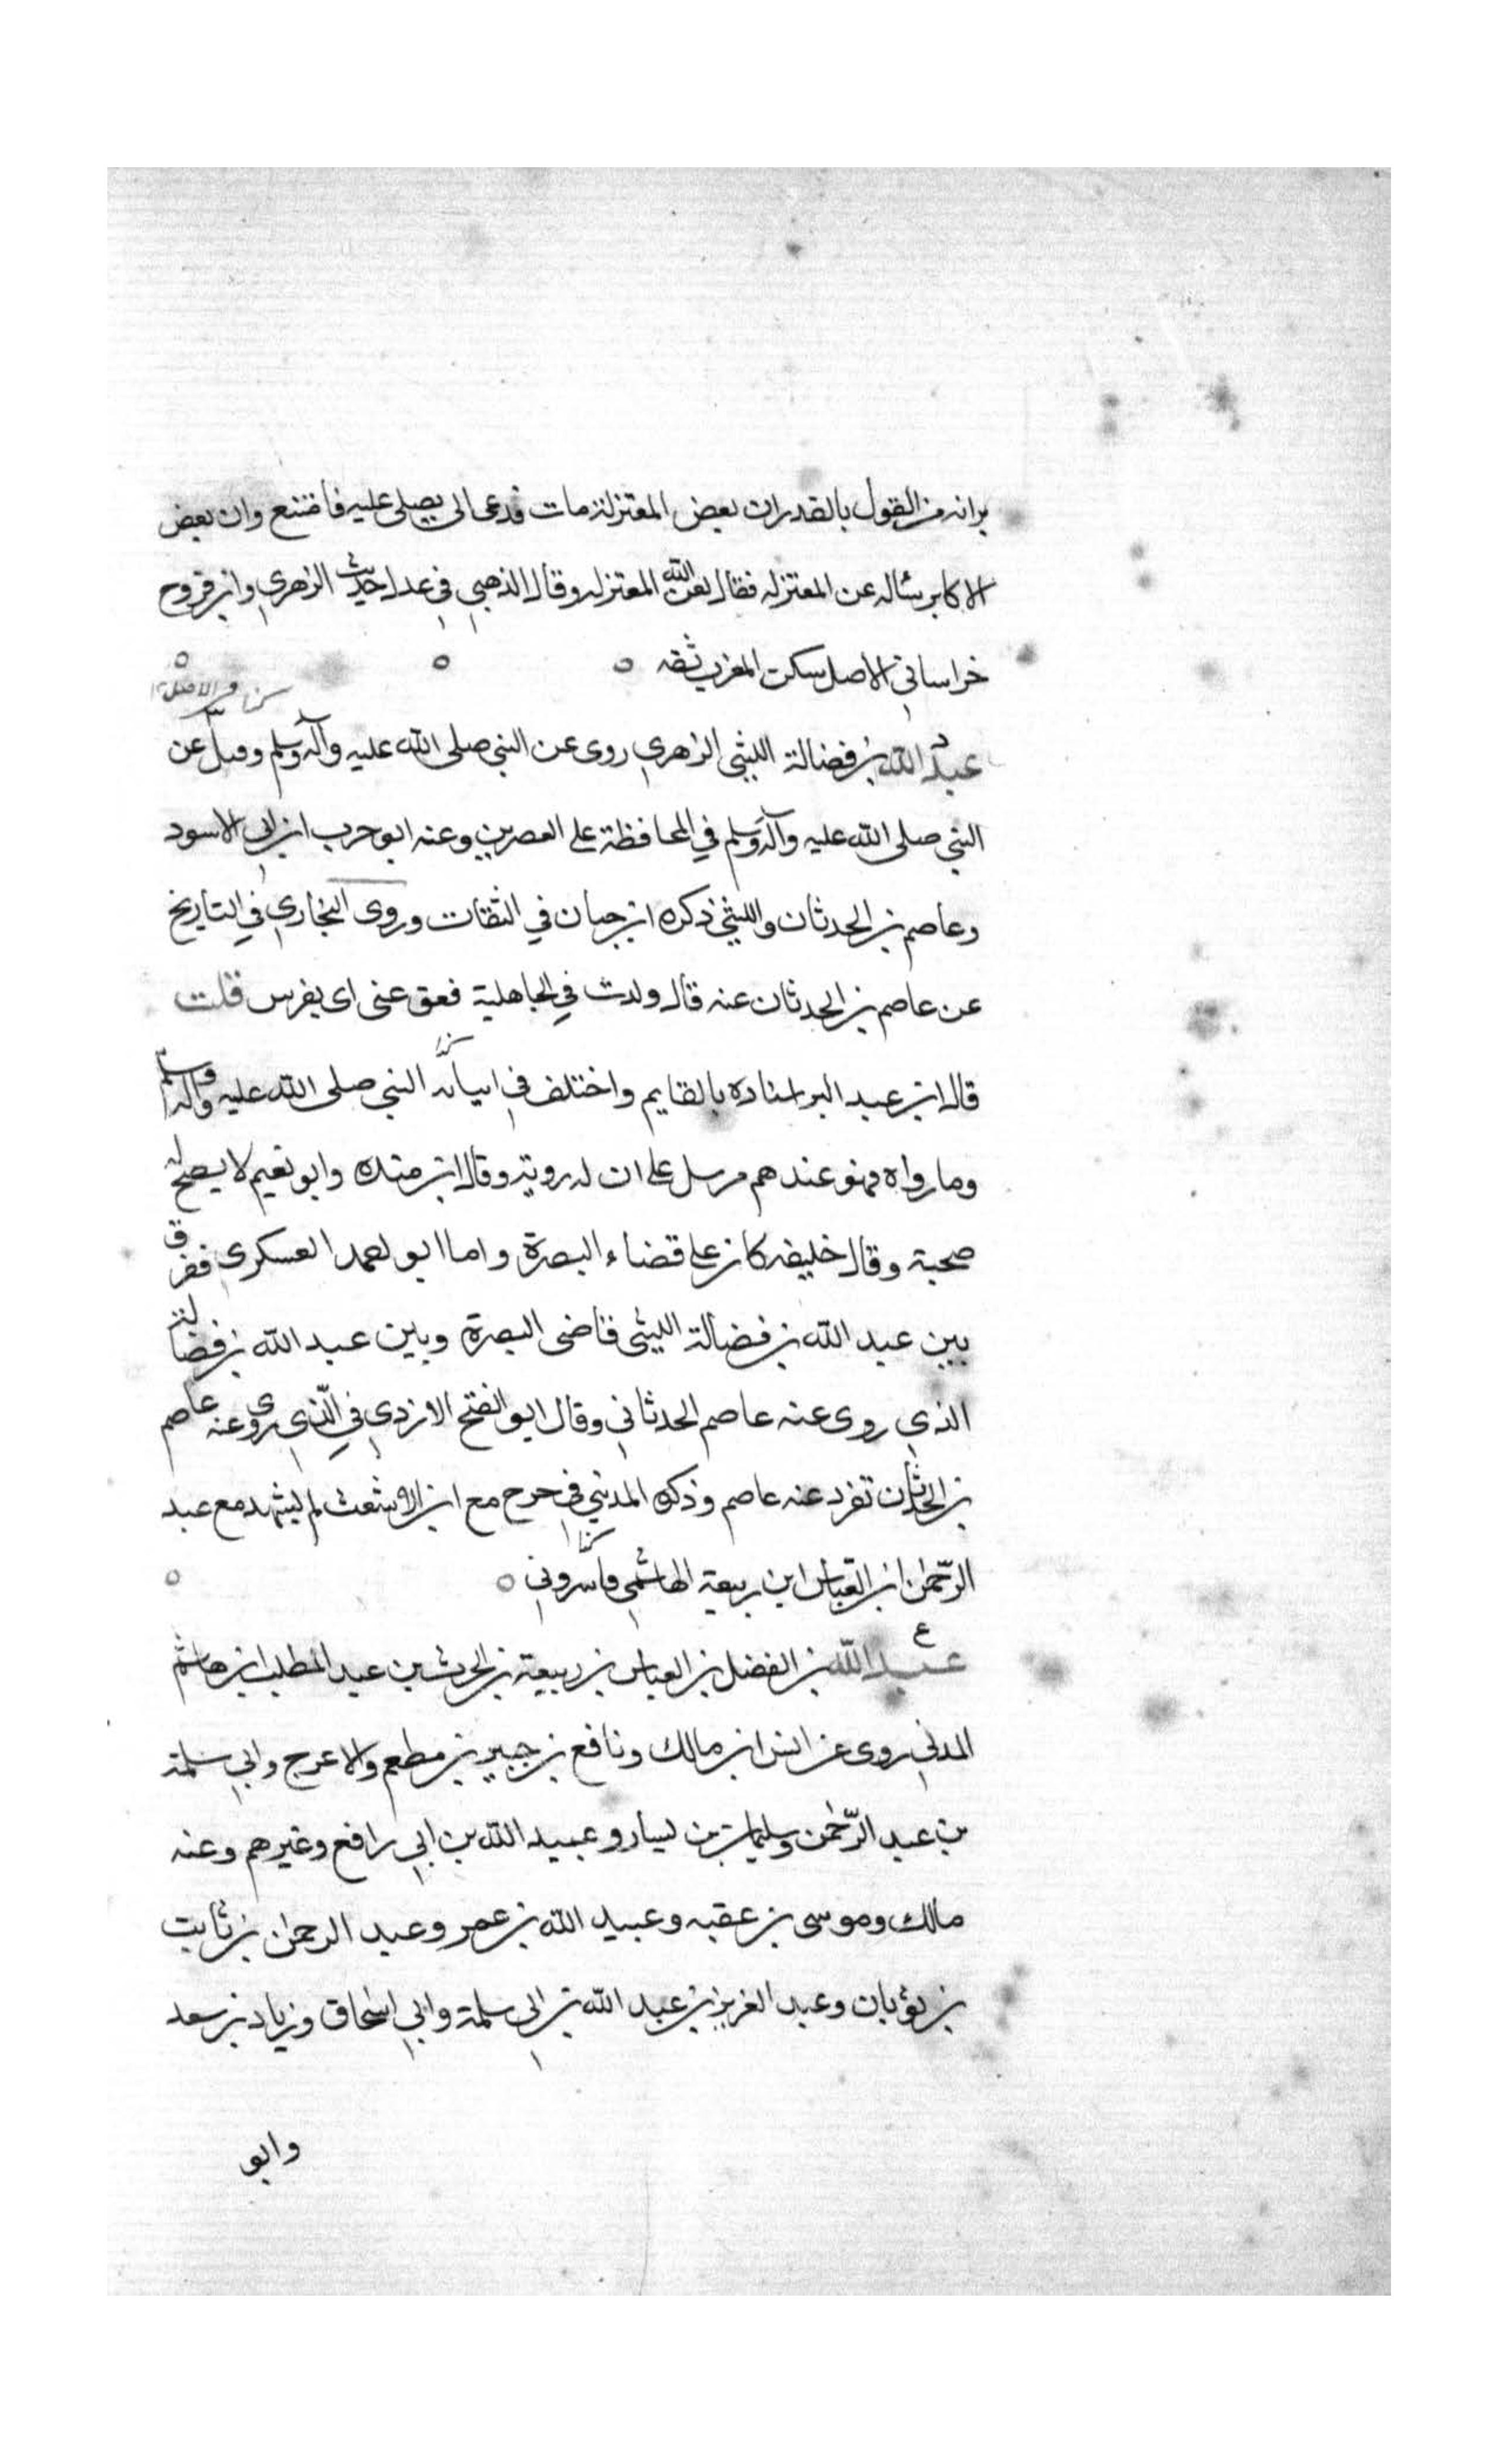 براته من القول بالقدر ان بعض المعتزلة مات فدعى الى يصلى عليه فامتنع وان بعض
الاكابر سئاله عن المعتزله فقال لعن الله المعتزله وقال الذهبي في عدا حديث الزهري وابن فروح
خراساني الاصل سكن المغرب ثقه
كذا في الاصل ١٢
عبد الله بن فضالة الليثي الزهري روى عن النبي صلى الله عليه وآله وسلم وقيل عن
النبي صلى الله عليه وآله وسلم في المحافظة على العصرين وعنه ابو حرب ابن ابي الاسود
وعاصم بن الحدثان والليثي ذكره ابن حبان في الثقات وروى البخاري في التاريخ
عن عاصم بن الحدثان عنه قال ولدت في الجاهلية فعق عنى اى بفرس قلت
كذا
قال ابن عبد البر اسناده بالقايم واختلف في اتيانه النبي صلى الله عليه وآله وسلم
وما رواه فهو عندهم مرسل على ان له روية وقال ابن منده وابو نعيم لا يصح له
صحبة وقال خليفه كان على قضاء البصرة واما ابو احمد العسكرى ففرق
بين عبد الله بن فضالة الليثى قاضى البصرة وبين عبد الله بن فضالة
الذي روى عنه عاصم الحدثاني وقال ابو الفتح الازدي في الّذي روى عنه عاصم
بن الحدثان تفرد عنه عاصم وذكر المدني في حرح مع ابن الاشعث لم ليشهد مع عبد
كذا
الرّحمن ابن العبّاس ابن ربيعة الهاشمي
ع
عبد الله بن الفضل بن العباس بن ربيعة بن الحرث بن عبد المطلب ابن هاشم
المدني روى عن انس ابن مالك ونافع بن جبير بن مطعم والاعرج وابي سلمة
بن عبد الرّحمن وسليمان بن يسار وعبيد الله بن ابي رافع وغيرهم وعنه
مالك وموسى بن عقبه وعبيد الله بن عمر وعبد الرحمن بن ثابت
بن ثوبان وعبد العزيز بن عبد الله بن ابى سلمة وابي اسحاق وزياد بن سعد
وابو